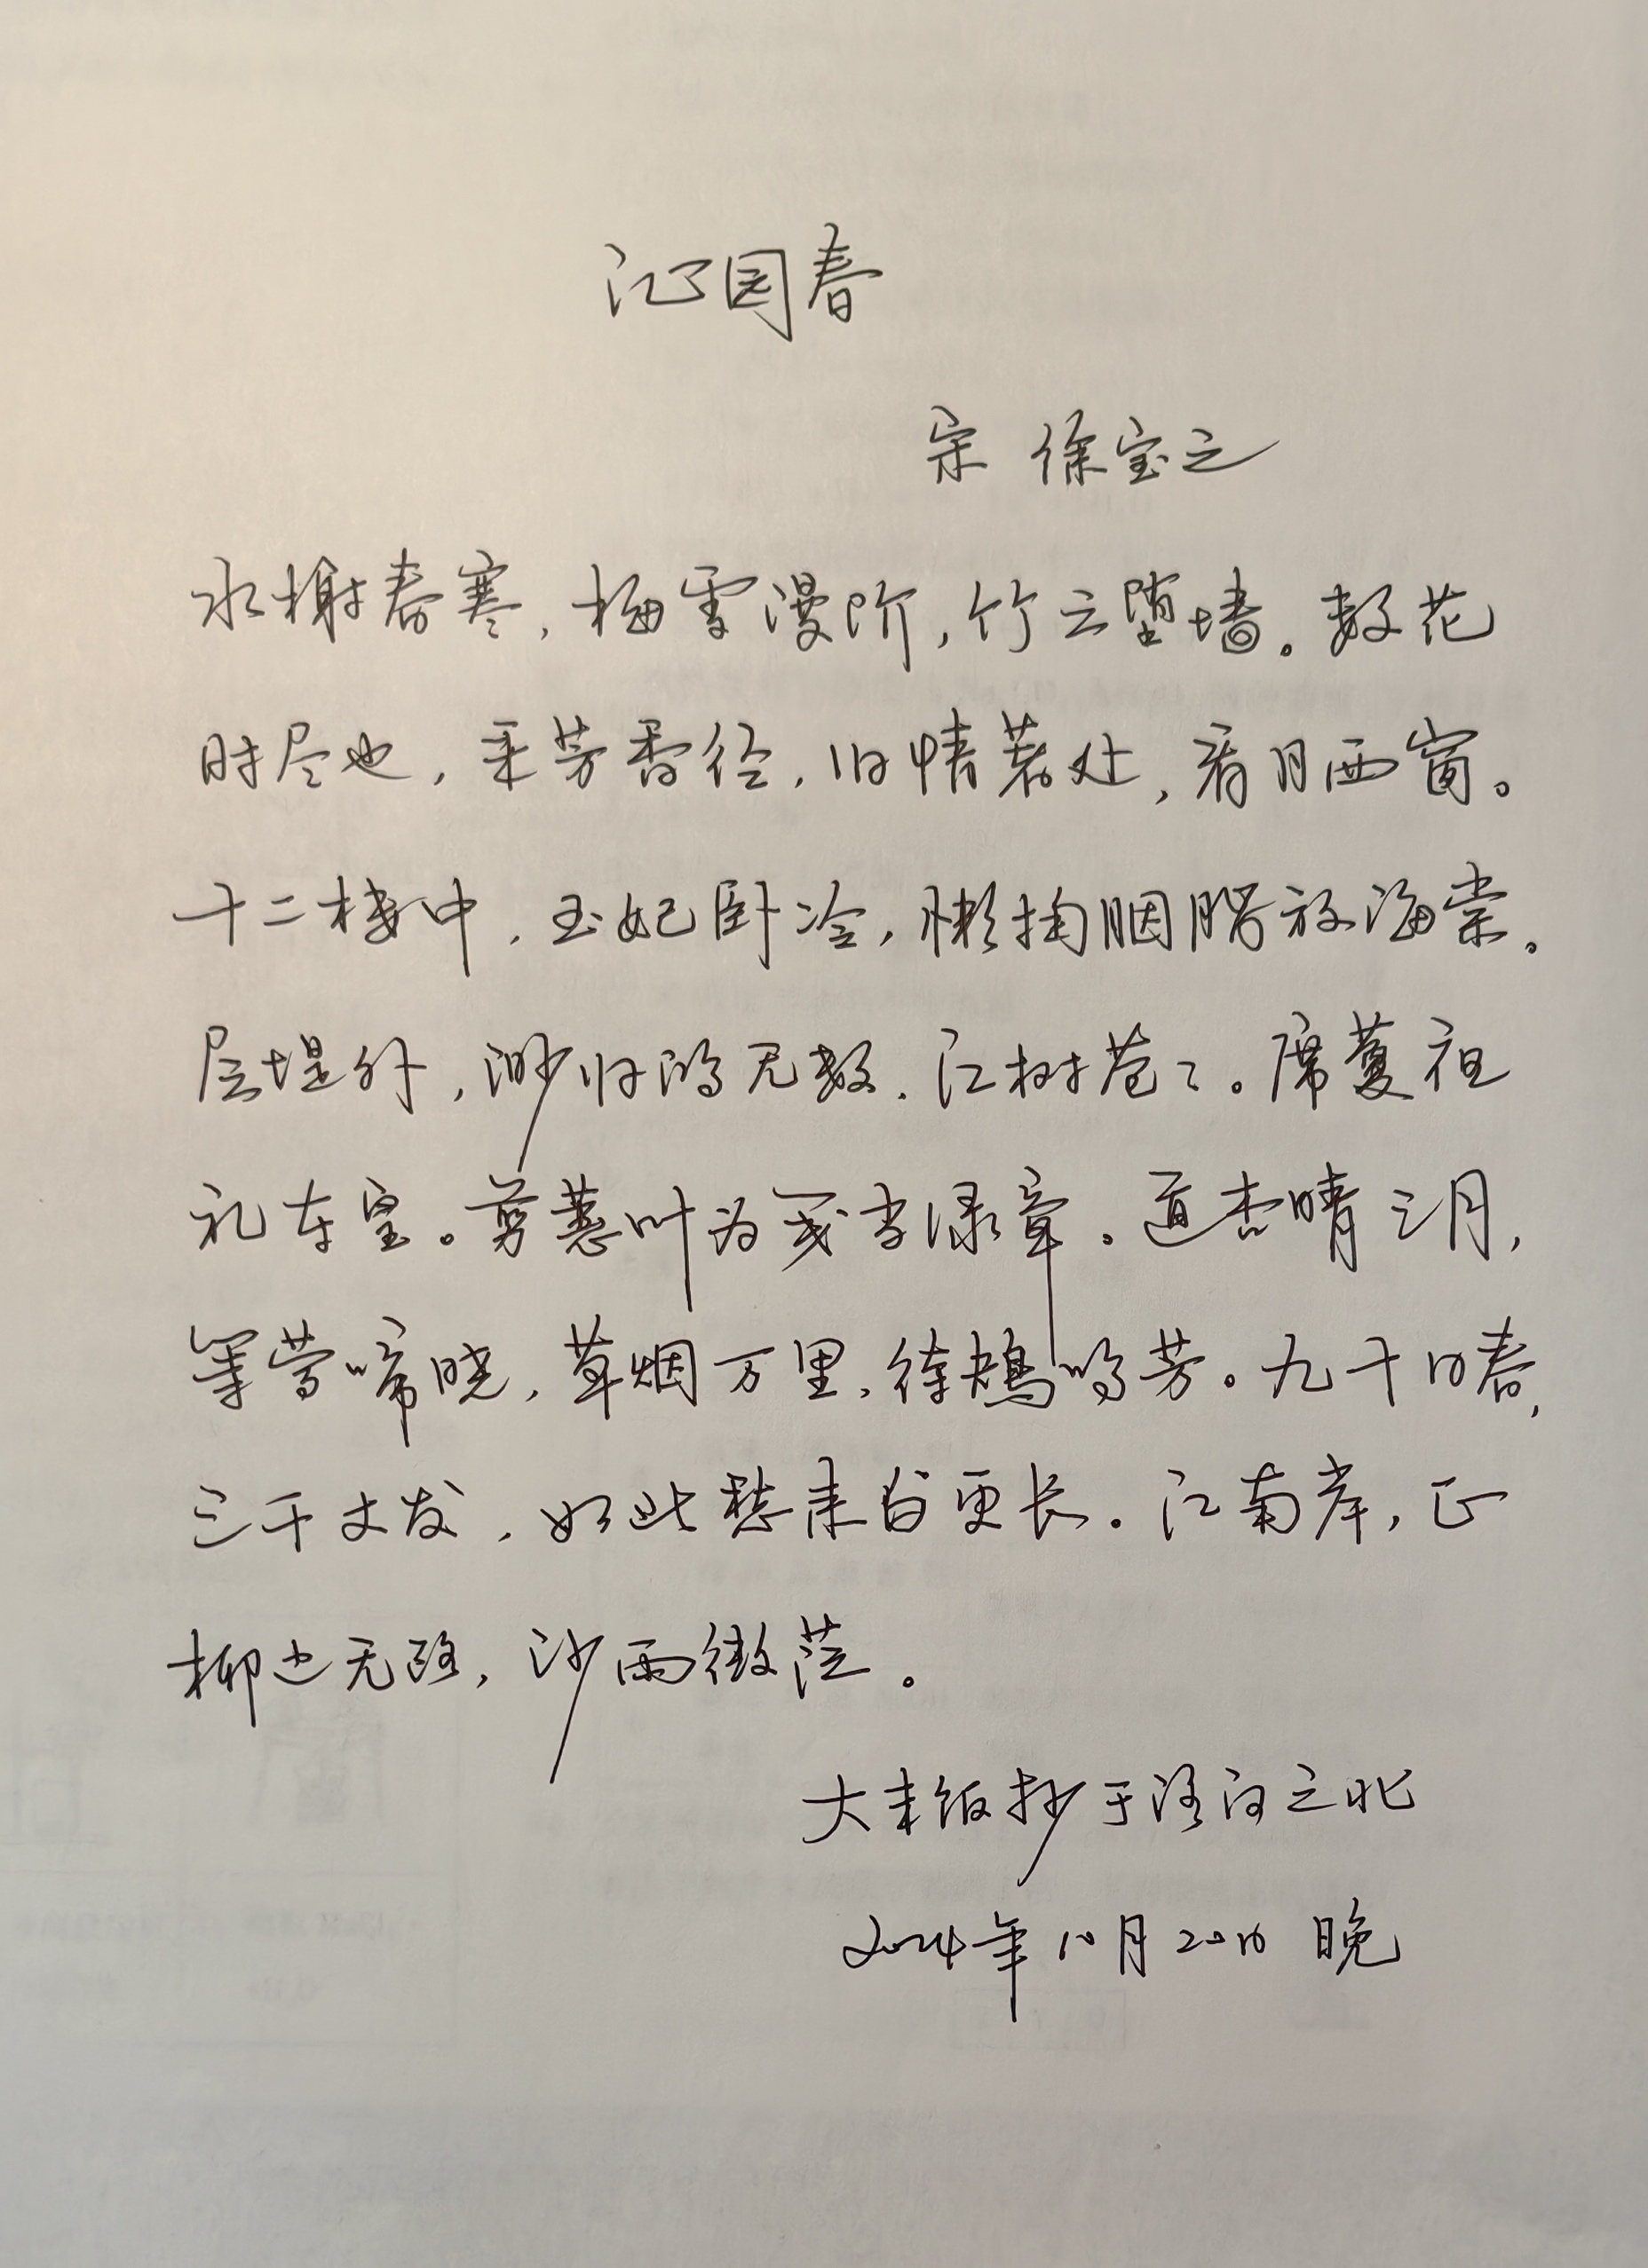 沁园春
宋 徐宝之
水榭春寒，梅雪漫阶，竹云堕墙。数花
时尽也，采芳香径，旧情若处，看月西窗。
十二楼中，玉妃卧冷，懒掬胭脂放海棠。
层堤外，渺归鸿无数，江树苍々。席蔓祖
礼东皇。剪蕙叶为笺当绿章。道杏晴三月，
等莺啼晓，草烟万里，待鴂鸣芳。九十日春，
三千丈发，如此愁来白更长。江南岸，正
柳边无路，沙雨微茫。
大米饭抄于洛河之北
2024年10月20日 晚